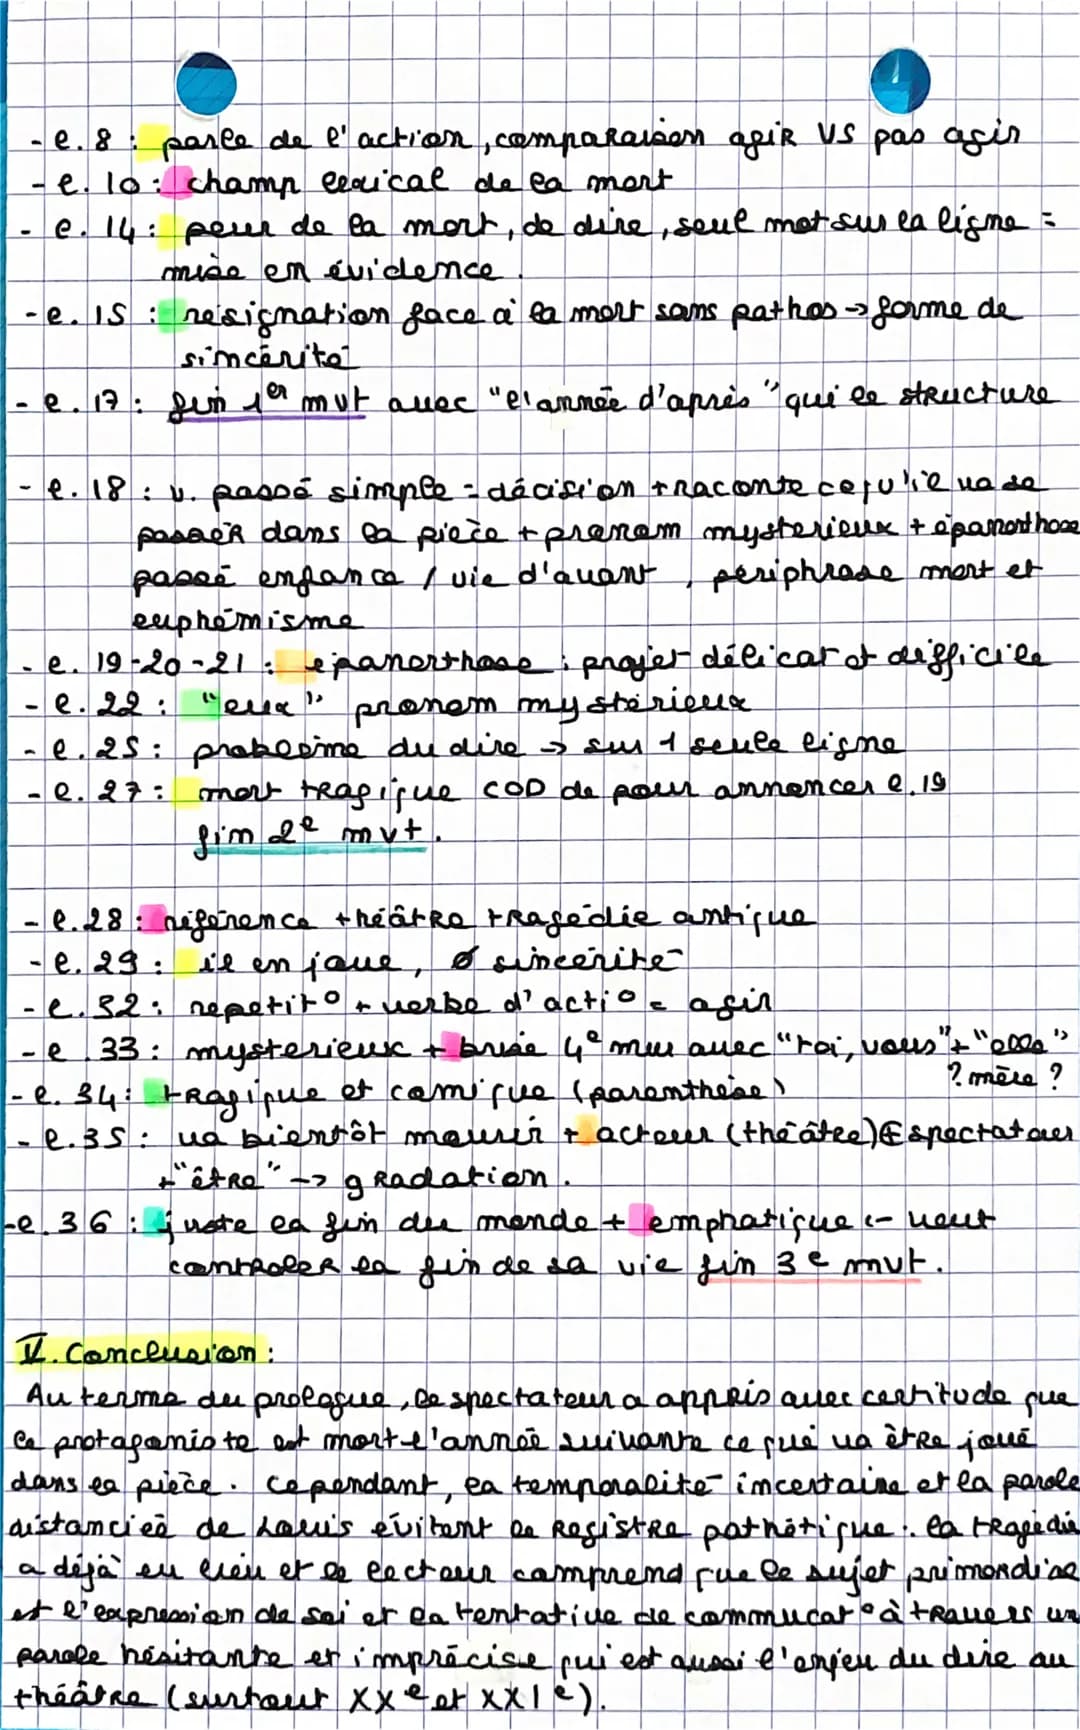 - l. 8 : parle de l'action, comparaison agir VS pas agir
- l. 10 : champ lexical de la mort
- l. 14 : peur de la mort, de dire, seul mot sur la ligne =
mise en évidence.
- l. 15 : résignation face à la mort sans pathos -> forme de
sincérité
- l. 17 : fin 1er mvt avec "l'année d'après" qui le structure
- l. 18 : v. passé simple = décision + raconte ce qu'il va se
passer dans la pièce + pronom mysterieux + épanorthose
passé enfance / vie d'avant, périphrase mort et
euphémisme
- l. 19-20-21 : épanorthose : projet délicat et difficile
- l. 22 : "eux" pronom mystérieux
- l. 25 : problème du dire -> sur 1 seule ligne
- l. 27 : mort tragique COD de pour annoncer l. 19
fin 2e mvt.
- l. 28 : référence théâtre tragédie antique
- l. 29 : il en joue, Ø sincérité
- l. 32 : repetit° + verbe d'acti° = agir
- l. 33 : mysterieux + brise 4e mur avec "toi, vous" + "elle"
? mère ?
- l. 34 : tragique et comique (parenthèse)
- l. 35 : va bientôt mourir + acteur (théâtre) E spectateur
+ "être" -> gradation.
- l. 36 : juste la fin du monde + emphatique <- veut
controler la fin de sa vie fin 3e mvt.
V. Conclusion :
Au terme du prologue, le spectateur a appris avec certitude que
le protagoniste est mort l'année suivante ce qui va être joué
dans la pièce. Cependant, la temporalité incertaine et la parole
distanciée de Louis évitent le registre pathétique : la tragédie
a déjà eu lieu et le lecteur comprend que le sujet primordial
est l'expression de soi et la tentative de commucat° à travers un
parole hésitante et imprécise qui est aussi l'enjeu du dire au
théâtre (surtout XXe et XXIe).